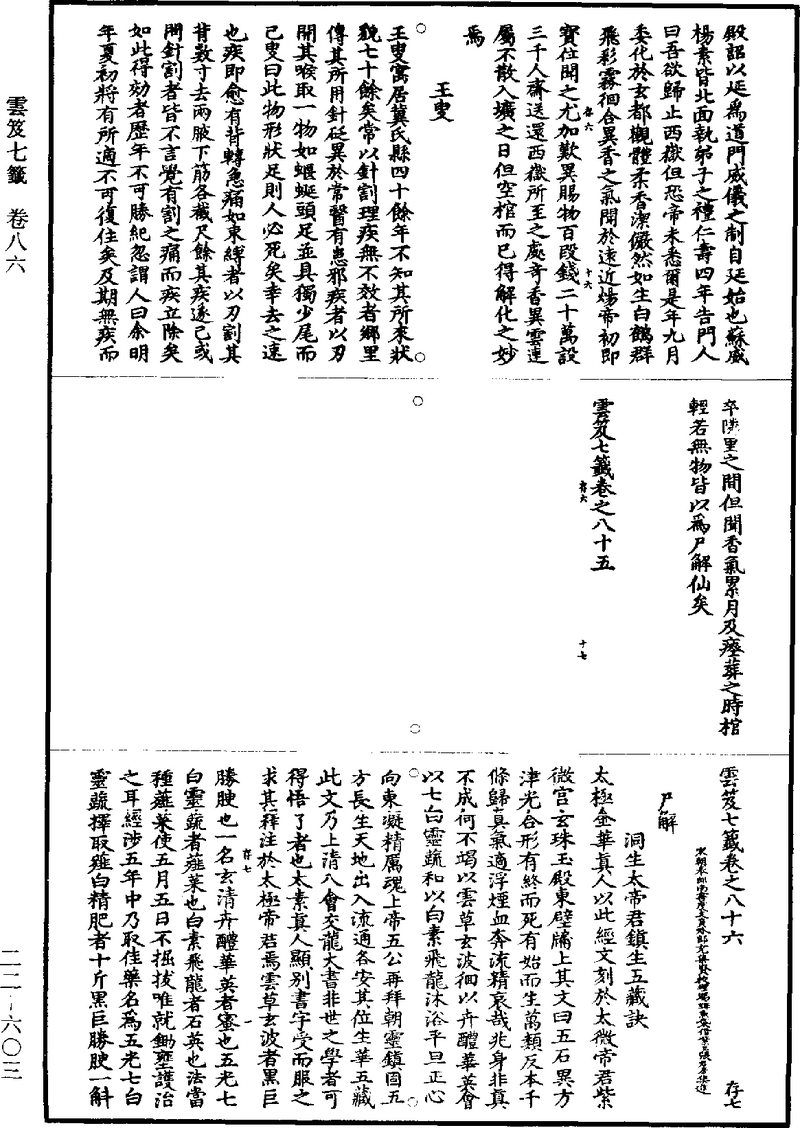 雲笈七籤 卷八六
二二—六〇三
殿詔以延爲道門威儀之制自延始也蘇威
楊素皆北面執弟子之禮仁壽四年告門人
曰吾欲歸止西嶽但恐帝未悉爾是年九月
委化於玄都觀體柔香潔儼然如生白鶴群
飛彩霧徊合異香之氣聞於遠近煬帝初即
存六
十六
寶位聞之尤加歎異賜物百段錢二十萬設
三千人齋送還西嶽所至之處奇香異雲連
屬不散入壙之日但空棺而已得解化之妙
焉
王叟
王叟寓居冀氏縣四十餘年不知其所來狀
貌七十餘矣常以針割理疾無不效者鄉里
傳其所用針砭異於常醫有患邪疾者以刃
開其喉取一物如蝘蜓頭足並具獨少尾而
已叟曰此物形狀足則人必死矣幸去之速
也疾即愈有背轉急痛如束縛者以刀割其
背數寸去兩腋下筋各截尺餘其疾遂已或
開針割者皆不言覺有割之痛而疾立除矣
如此得効者歷年不可勝紀忽謂人曰余明
年夏初將有所適不可復住矣及期無疾而
卒隣里之間但聞香氣累月及瘞葬之時棺
輕若無物皆以爲尸解仙矣
雲笈七籤卷之八十五
存六
十七
雲笈七籤卷之八十六
存七
尸解
洞生太帝君鎮生五藏訣
太極金華真人以此經文刻於太微帝君紫
微宮玄珠玉殿東壁牖上其文曰五石異方
津光合形有終而死有始而生萬類反本千
條歸真氣適浮煙血奔流精哀哉兆身非真
不成何不竭以雲草玄波徊以卉醴華英會
以七白靈蔬和以白素飛龍沐浴平旦正心
向東凝精厲魂上帝五公再拜朝靈鎮固五
方長生天地出入流通各安其位生華五藏
此文乃上清八會交龍大書非世之學者可
得悟了者也太素真人顯別書字受而服之
求其釋注於太極帝君焉雲草玄波者黑巨
存七
一
勝腴也一名玄清卉醴華英者蜜也五光七
白靈蔬者薤菜也白素飛龍者石英也法當
種薤菜使五月五日不掘拔唯就鋤壅護治
之耳經涉五年中乃取佳藥名爲五光七白
靈蔬擇取薤白精肥者十斤黑巨勝腴一斛